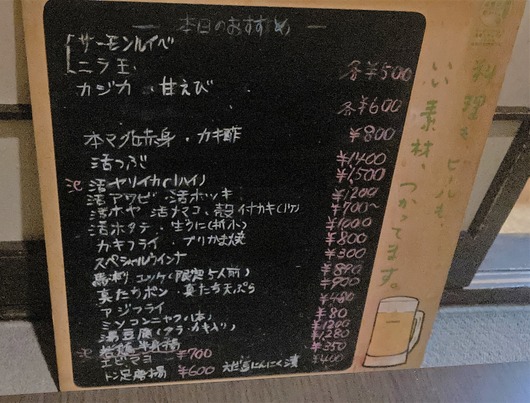 本日のおすすめ
サーモンルイベ
ニラ玉
各¥500
カジカ 甘えび
各¥600
本マグロ赤身・カキ酢 ¥800
活つぶ ¥1400
活ヤリイカ(1ハイ) ¥1500
活アワビ・活ホッキ ¥1200
活ホヤ 活ナマコ、殻付カキ(1ケ) ¥700〜
活ホタテ・生うに(折小) ¥1000
カキフライ・ブリかま焼 ¥800
スペシャルウインナ ¥300
馬刺 ユッケ(限定5人前)
真たちポン・真たち天ぷら ¥900
アジフライ ¥480
ミソコンニャク(1本) ¥80
湯豆腐(タラ・カキ入り)
若焼半身揚
エビマヨ ¥700 ¥350
トン足唐揚 ¥600 えだ豆にんにく漬 ¥400
料理も ビールも、
いい素材、つかってます。